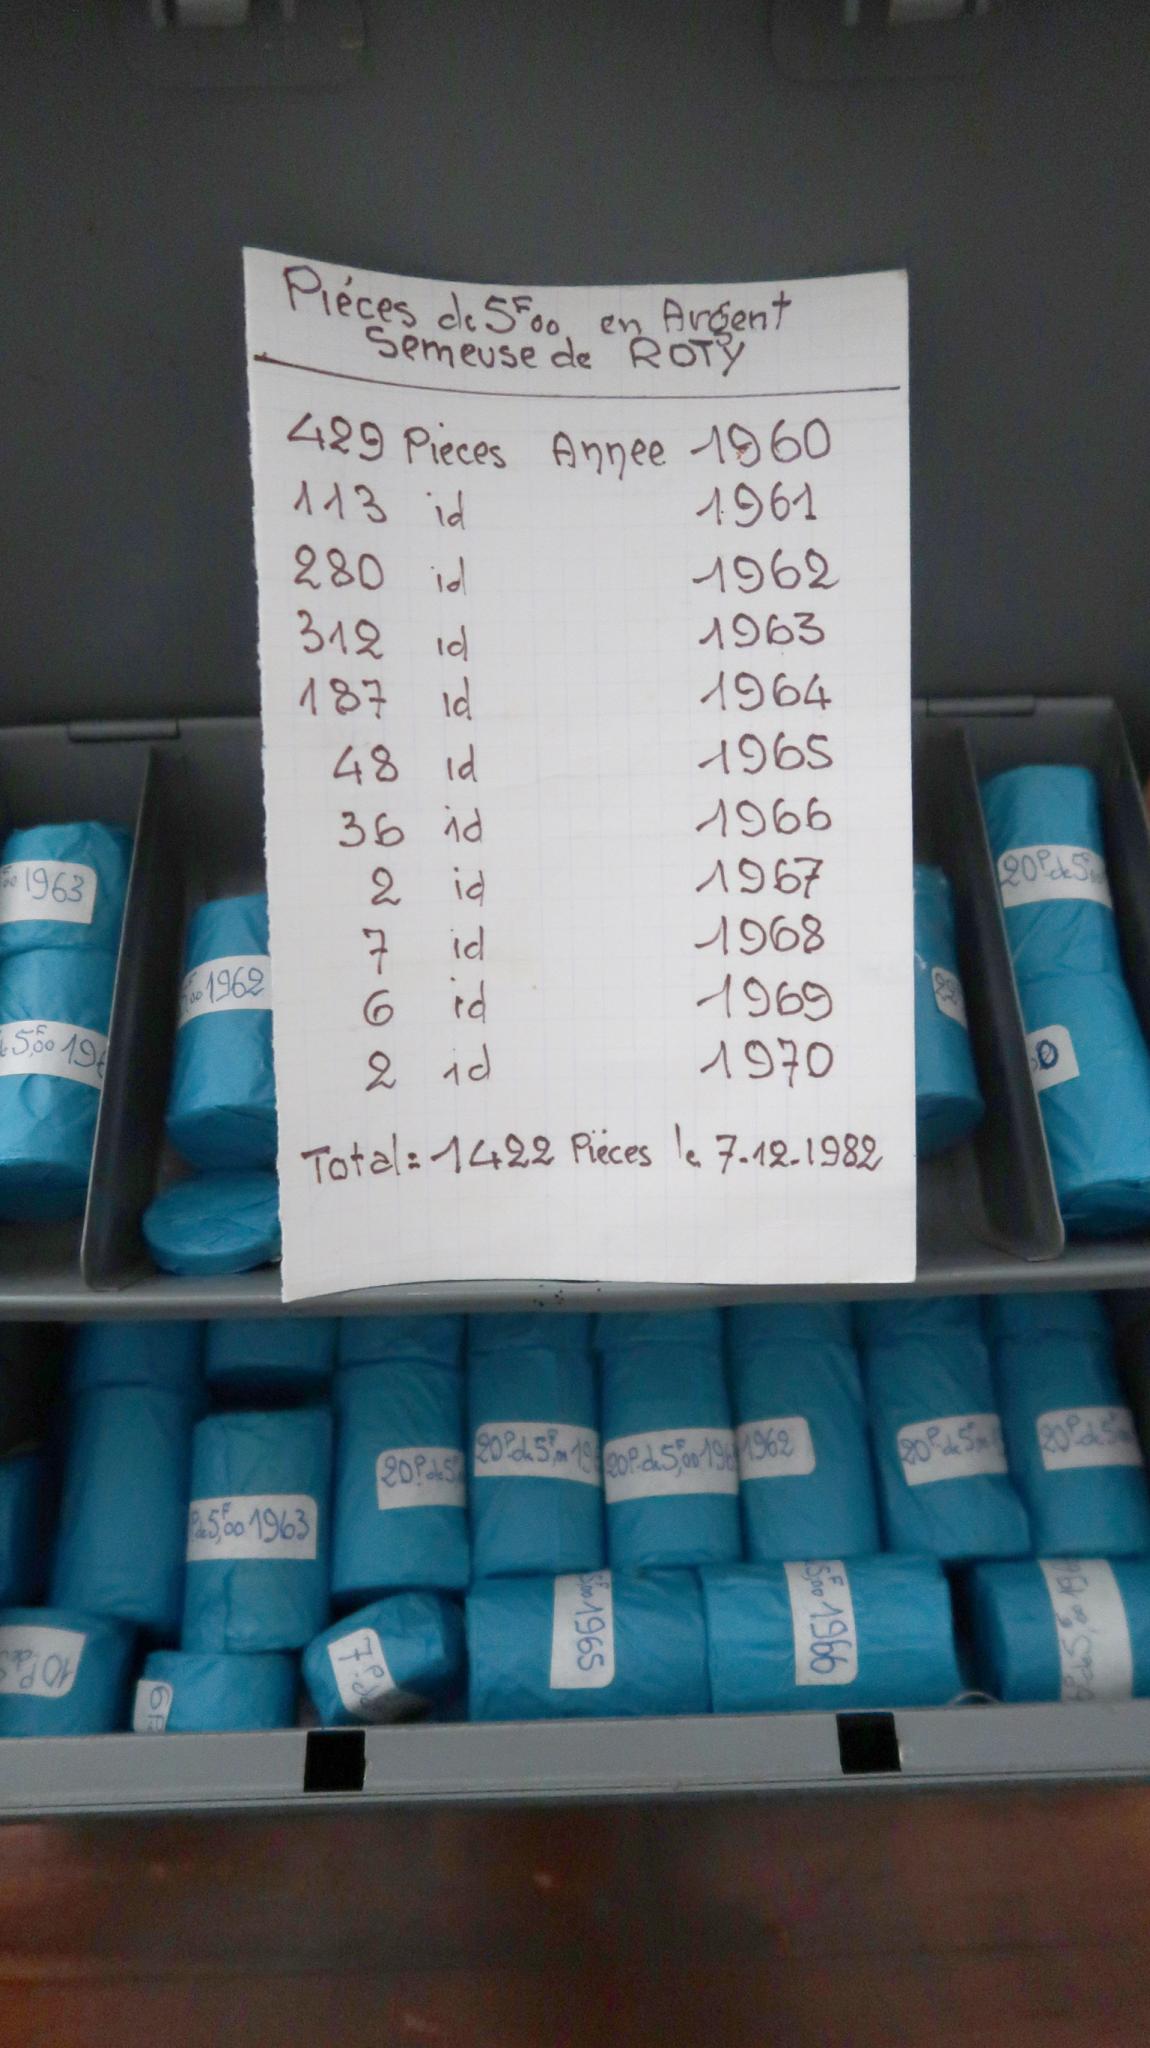 Piéces de 5F00 en Argent
Semeuse de ROTY
429 Pieces Annee 1960
113 id 1961
280 id 1962
312 id 1963
187 id 1964
48 id 1965
36 id 1966
2 id 1967
7 id 1968
6 id 1969
2 id 1970
Total = 1422 Piëces le 7.12.1982
1963
20P de 5F
00 1962
de 5F,00 19
20P. de 5F
20P. de 5F,00 19
20P. de 5F,00 196
1962
20P. de 5F,00
20P. de 5F
P de 5F,00 1963
10P. de 5
6P
7P. de
5F,00 1965
5F,00 1966
de 5F,00 196